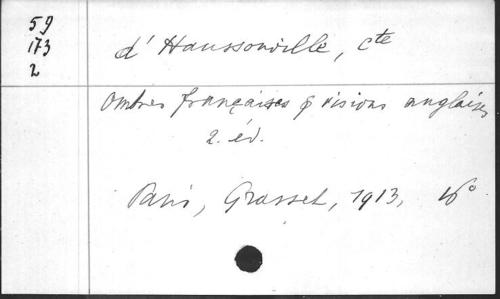 59
173
2
d'Haussonville, Cte
Ombres françaises & visions anglaises
2. éd.
Paris, Grasset, 1913, 16°